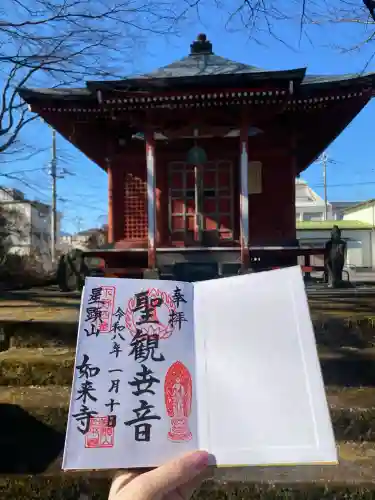 奉拝
聖観世音
令和八年一月十日
星顕山
如来寺